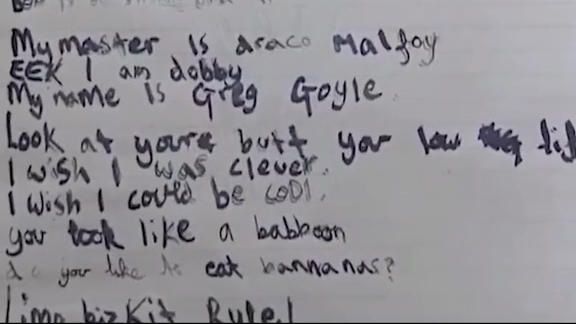 My master is draco Malfoy
EEK I am dobby
My name is Greg Goyle
Look at your butt you low
I wish I was clever.
I wish I could be cool.
you look like a babboon
do you like to eat bannanas?
Limp bizkit Rule!